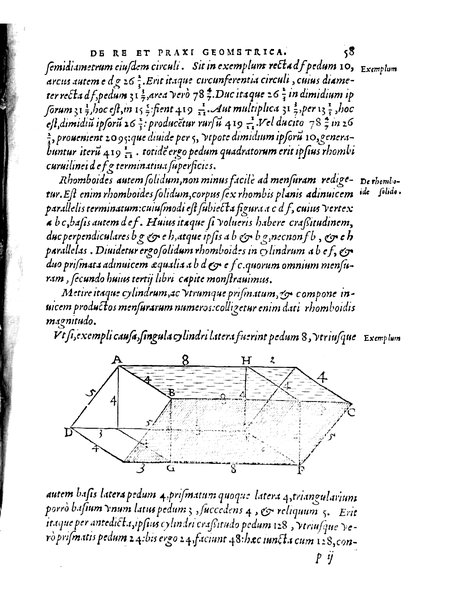 DE RE ET PRAXI GEOMETRICA. 58
semidiametrum eiusdem circuli. Sit in exemplum recta d f pedum 10,
Exemplum
arcus autem e d g 26 2/3. Erit itaque circunferentia circuli, cuius diame-
ter recta d f, pedum 31 3/7 area verò 78 4/7. Duc itaque 26 2/3 in dimidium ip
sorum 31 3/7, hoc est, in 15 5/7 fient 419 1/21. Aut multiplica 31 3/7, per 13 1/3, hoc
est, dimidiũ ipsorũ 26 2/3: producetur rursũ 419 1/21. Vel ducito 78 4/7 in 26
2/3, prouenient 2095: que diuide per 5, vtpote dimidium ipsorũ 10, genera-
buntur iterũ 419 1/21. totidẽ ergo pedum quadratorum erit ipsius rhombi
curuilinei d e f g terminatiua superficies.
Rhomboides autem solidum, non minus facilè ad mensuram redige-
De rhombo-
tur. Est enim rhomboides solidum, corpus sex rhombis planis adinuicem
ide solido.
parallelis terminatum: cuiusmodi est subiecta figura a c d f, cuius vertex
a b c, basis autem d e f. Huius itaque si volueris habere craßitudinem,
duc perpendiculares b g & e h, atque ipsis a b & b g, necnon f b, & e h
parallelas. Diuidetur ergo solidum rhomboides in cylindrum a b e f, &
duo prismata adinuicem æqualia a b d & e f c. quorum omnium mensu-
ram, secundo huius tertij libri capite monstrauimus.
Metire itaque cylindrum, ac vtrumque prismatum, & compone in-
uicem productos mensurarum numeros: colligetur enim dati rhomboidis
magnitudo.
Vt si, exempli causa, singula cylindri latera fuerint pedum 8, vtriusque
Exemplum
A 8 H 2
5 4 4 4
B 8 4 C
D 3 4 5
4 3 G 8 F
autem basis latera pedum 4, prismatum quoque latera 4, triangularium
porrò basium vnum latus pedum 3, succedens 4, & reliquum 5. Erit
itaque per antedicta, ipsius cylindri craßitudo pedum 128, vtriusque ve-
rò prismatis pedum 24: bis ergo 24, faciunt 48: hæc iuncta cum 128, con-
p ij